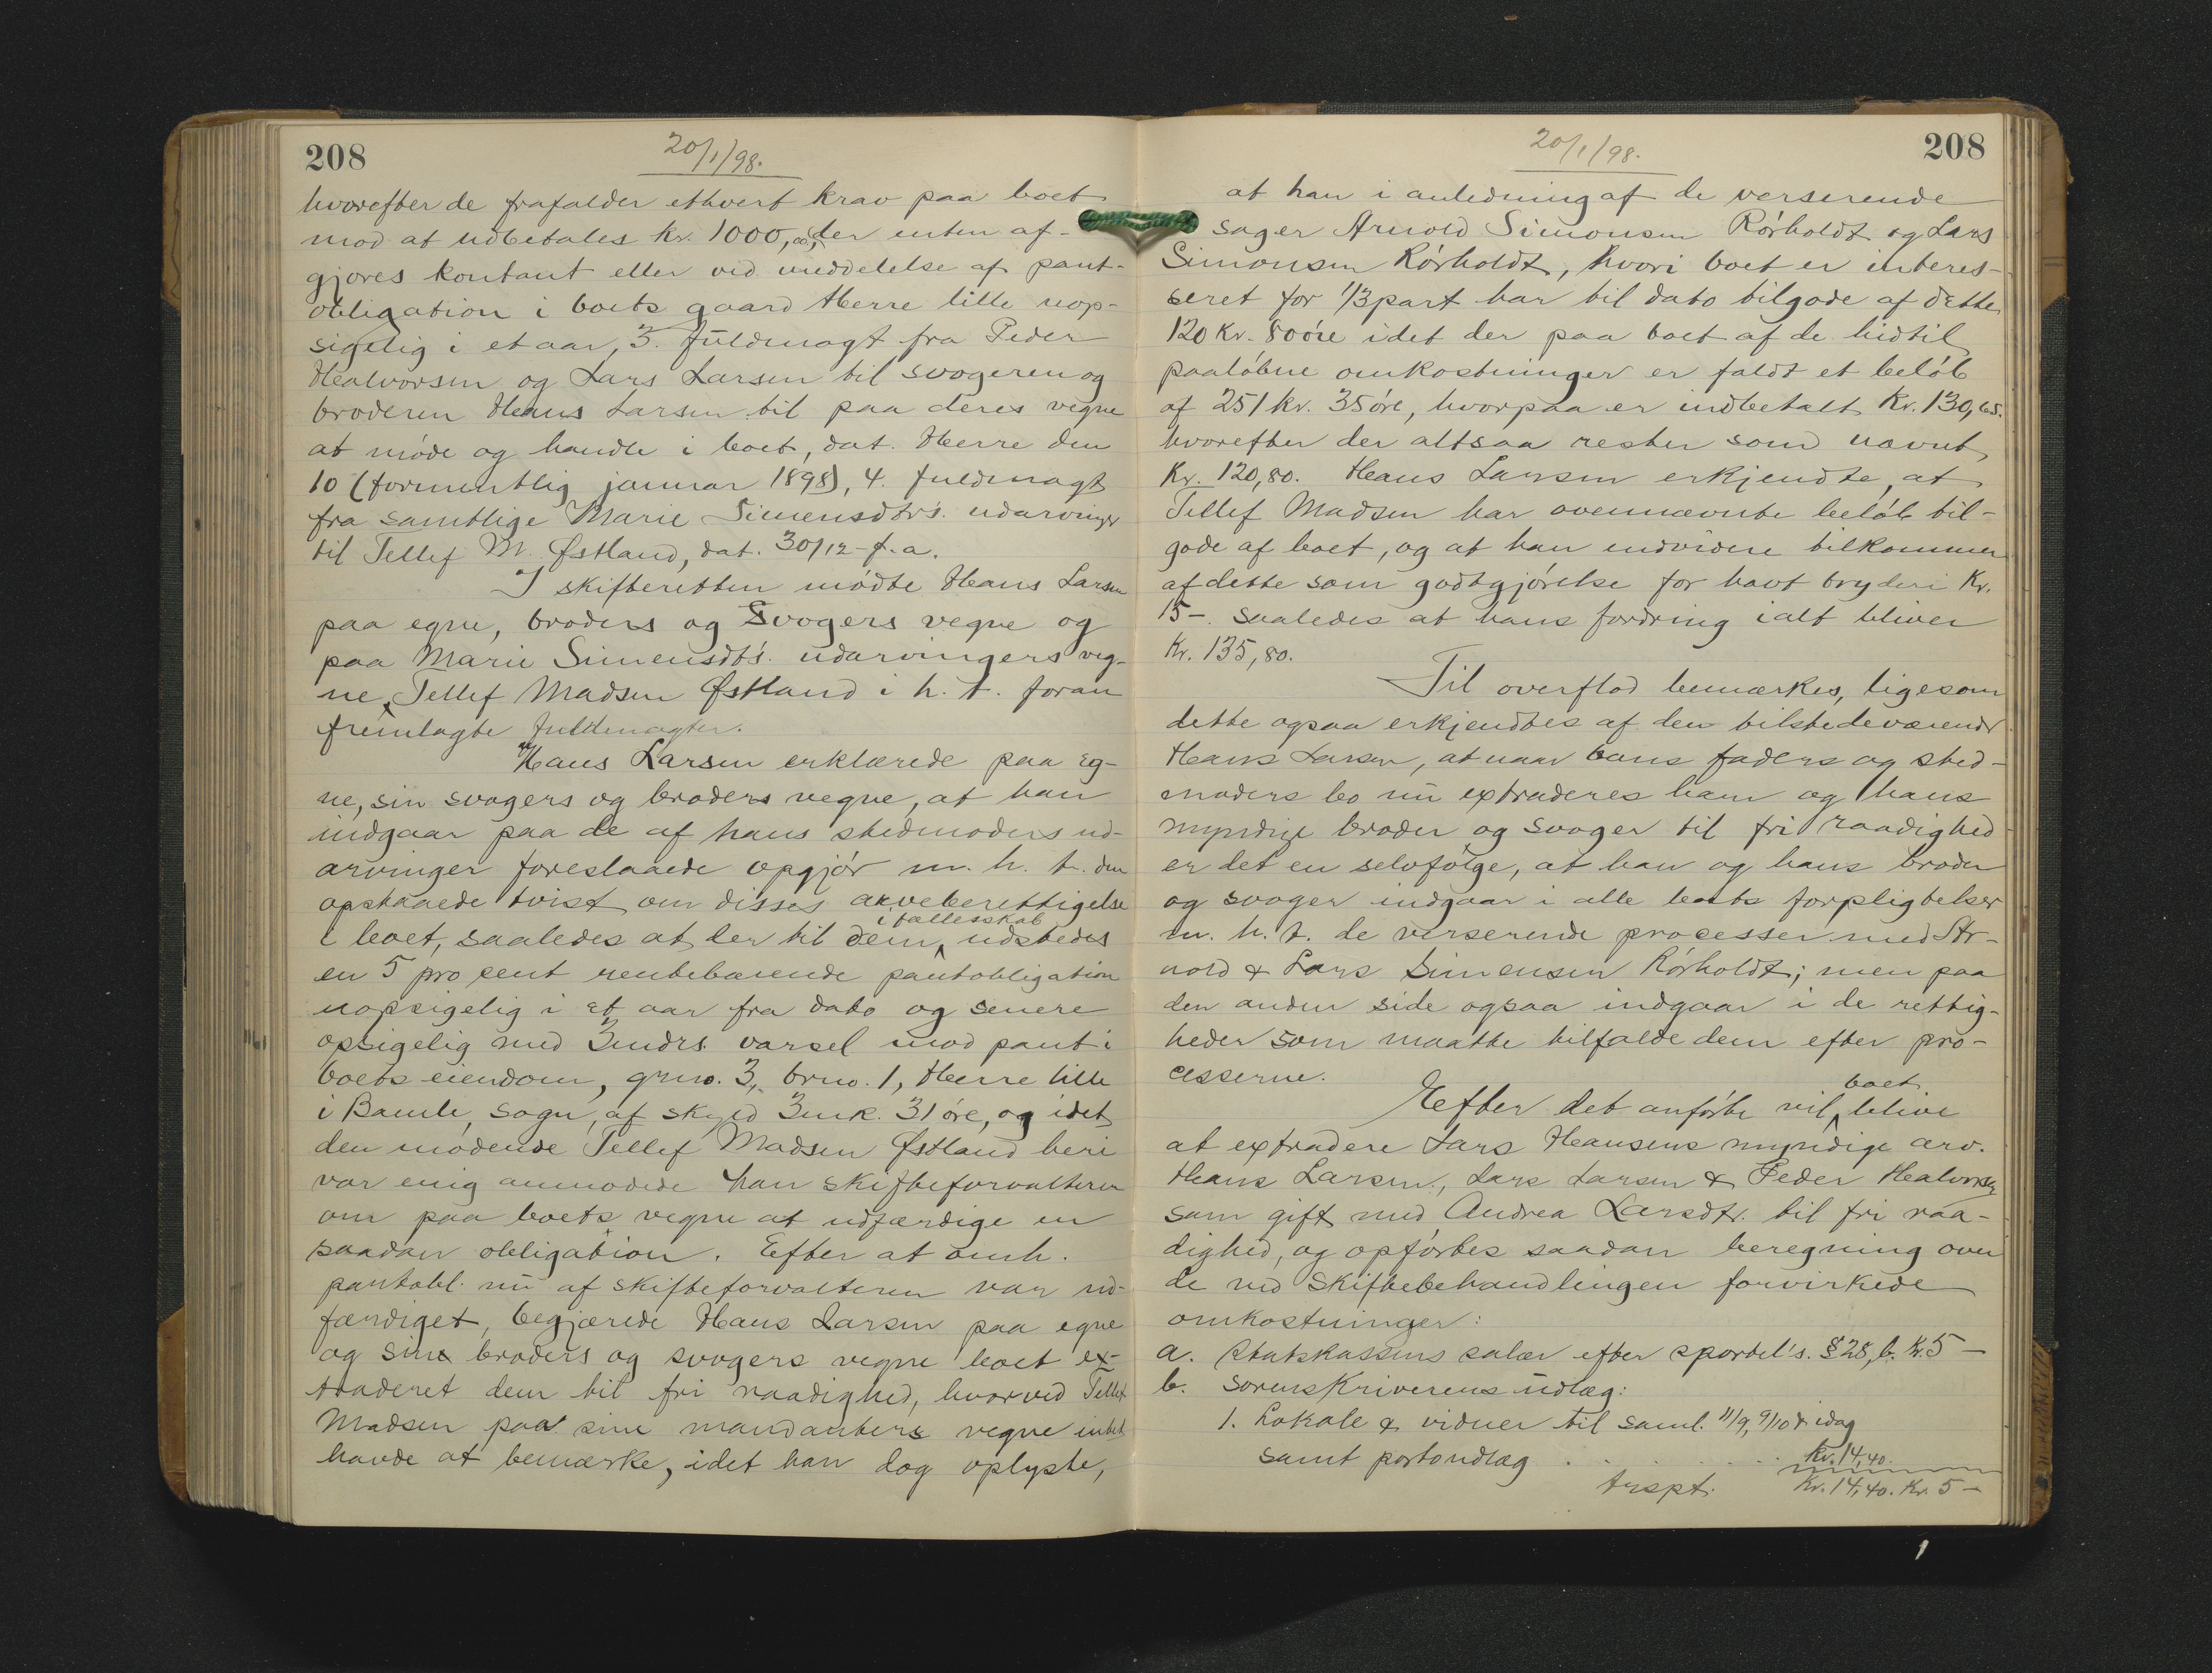 208
20/1/98.
hvorefter de frafalder ethvert krav paa boet
mod at udbetales Kr. 1000,00, der enten af-
gjøres kontant eller ved meddelelse af pant-
obligation i boets gaard Herre lille uop-
sigelig i et aar, 3. fuldmagt fra Peder
Halvorsen og Lars Larsen til svogeren og
broderen Hans Larsen til paa deres vegne
at møde og handle i boet, dat. Herre den
10 (formentlig januar 1898), 4. fuldmagt
fra samtlige Marie Simensdtr's. udarvinger
til Tellef M. Østland, dat. 30/12 f. a.
I skifteretten mødte Hans Larsen
paa egne, broders og Svogers vegne og
paa Marie Simensdt's. udarvingers veg-
ne, Tellef Madsen Østland i h. t. foran
fremlagte fuldmagter.
Hans Larsen erklærede paa eg-
ne, sin svogers og broders vegne, at han
indgaar paa de af hans stedmoders ud-
arvinger foreslaaede opgjør m. h. t. den
opstaaede tvist om disses arveberettigelse
i boet, saaledes at der til dem i fællesskab udstedes
en 5 pro cent rentebærende pantobligation
uopsigelig i et aar fra dato og senere
opsigelig med 3 mdrs. varsel mod pant i
boets eiendom, grno. 3, brno. 1, Herre lille
i Bamle sogn, af skyld 3 mk. 31 øre, og idet
den mødende Tellef Madsen Østland heri
var enig anmodede han skifteforvalteren
om paa boets vegne at udfærdige en
saadan obligation. Efter at omh.
pantobl. nu af skifteforvalteren var ud-
færdiget, begjærede Hans Larsen paa egne
og sine broders og svogers vegne boet ex-
traderet dem til fri raadighed, hvorved Tellef
Madsen paa sine mandanters vegne intet
havde at bemærke, idet han dog oplyste,
208
20/1/98.
at han i anledning af de verserende
sager Arnold Simonsen Rørholdt og Lars
Simonsen Rørholdt, hvori boet er interes-
seret for 1/3 part har til dato tilgode af dette
120 Kr. 80 øre idet der paa boet af de hidtil
paaløbne omkostninger er faldt et beløb
af 251 kr. 35 øre, hvorpaa er indbetalt Kr. 130,65.
hvorefter der altsaa rester som nævnt
Kr. 120,80. Hans Larsen erkjendte, at
Tellef Madsen har ovennævnte beløb til-
gode af boet, og at han endvidere tilkommer
af dette som godtgjørelse for havt bryderi Kr.
15-. saaledes at hans fordring ialt bliver
Kr. 135,80.
Til overflod bemærkes, ligesom
dette ogsaa erkjendtes af den tilstedeværende
Hans Larsen, at naar hans faders og sted-
moders bo nu extraderes ham og hans
myndige broder og svoger til fri raadighed
er det en selvfølge, at han og hans broder
og svoger indgaar i alle boets forpligtelser
m. h. t. de verserende processer med Ar-
nold & Lars Simensen Rørholdt; men paa
den anden side ogsaa indgaar i de rettig-
heder som maatte tilfalde dem efter pro-
cesserne.
Efter det anførte vil boet blive
at extradere Lars Hansens myndige arv.
Hans Larsen, Lars Larsen & Peder Halvorsen
som gift med Andrea Larsdtr. til fri raa-
dighed, og opførtes saadan beregning over
de ved skiftebehandlingen forvirkede
omkostninger:
a. Statskassens salær efter sportel's. § 28, b. Kr. 5-
b. sorenskriverens udlæg:
1. Lokale & vidner til saml. 11/9, 9/10 & idag
samt portoudlæg . . . Kr. 14,40.
trspt. Kr. 14,40. Kr. 5-